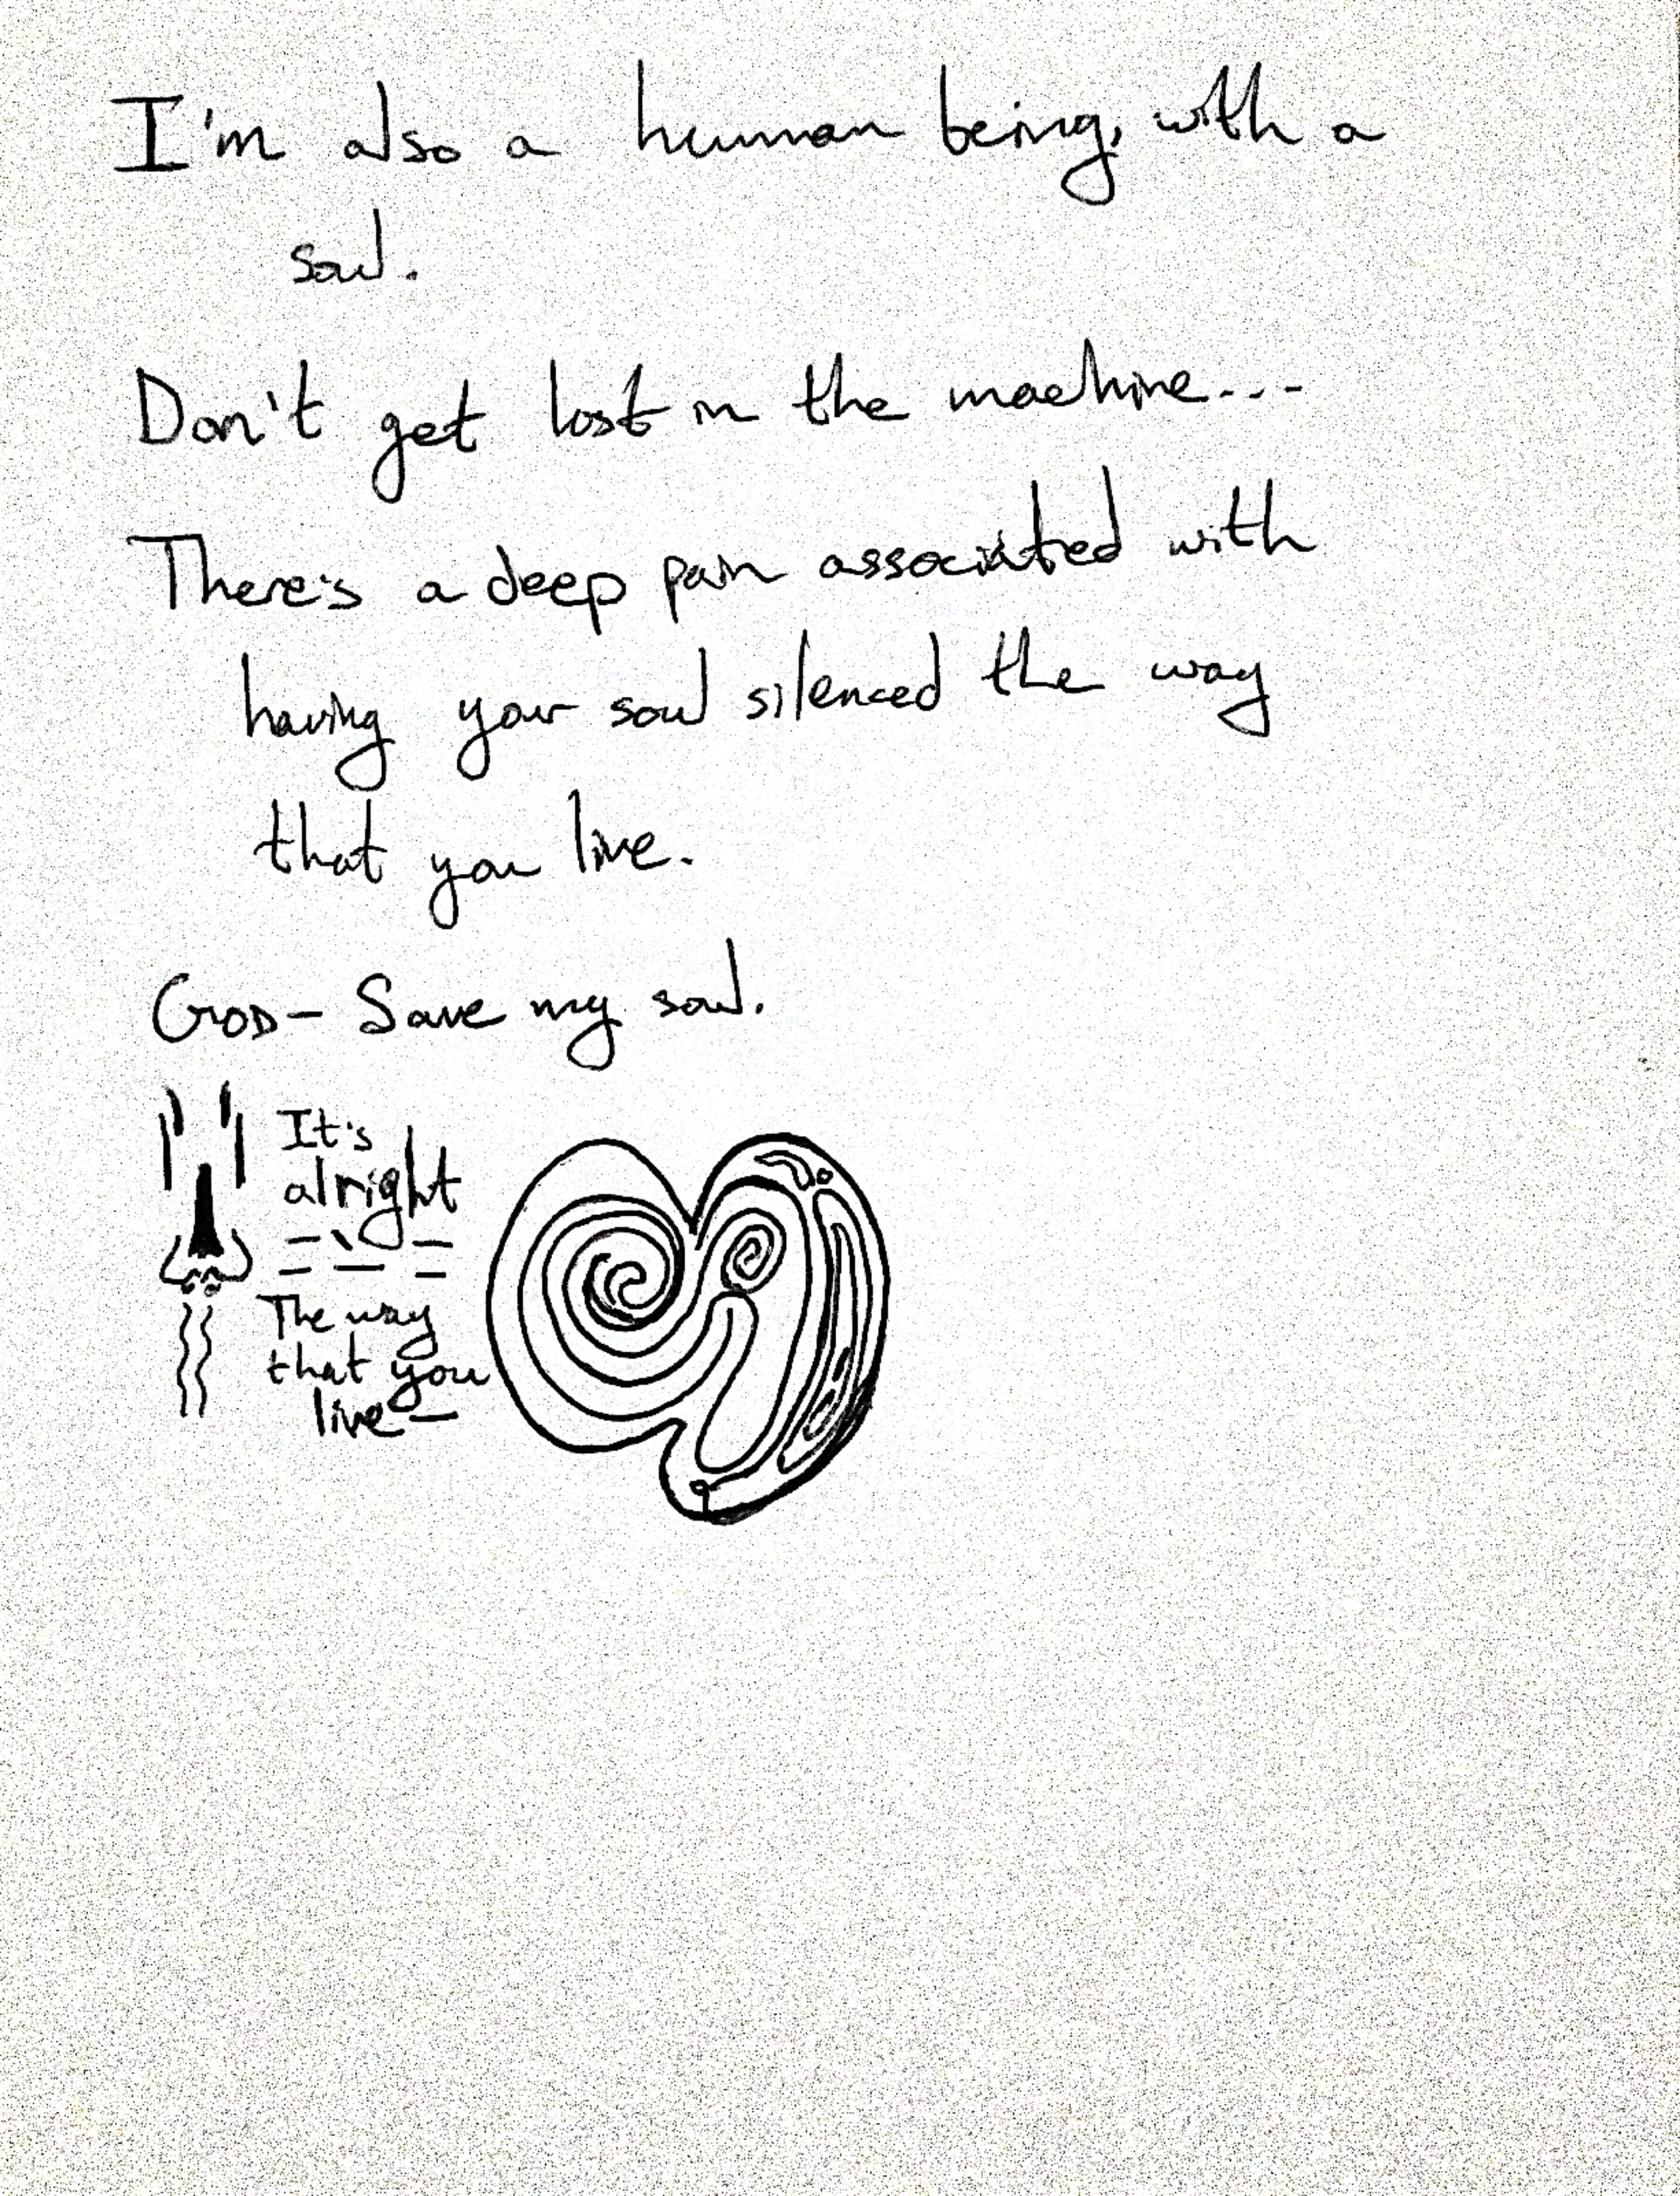 I'm also a human being, with a
soul.
Don't get lost in the machine...
There's a deep pain associated with
having your soul silenced the way
that you live.
GOD- Save my soul.
It's
alright
The way
that you
live-